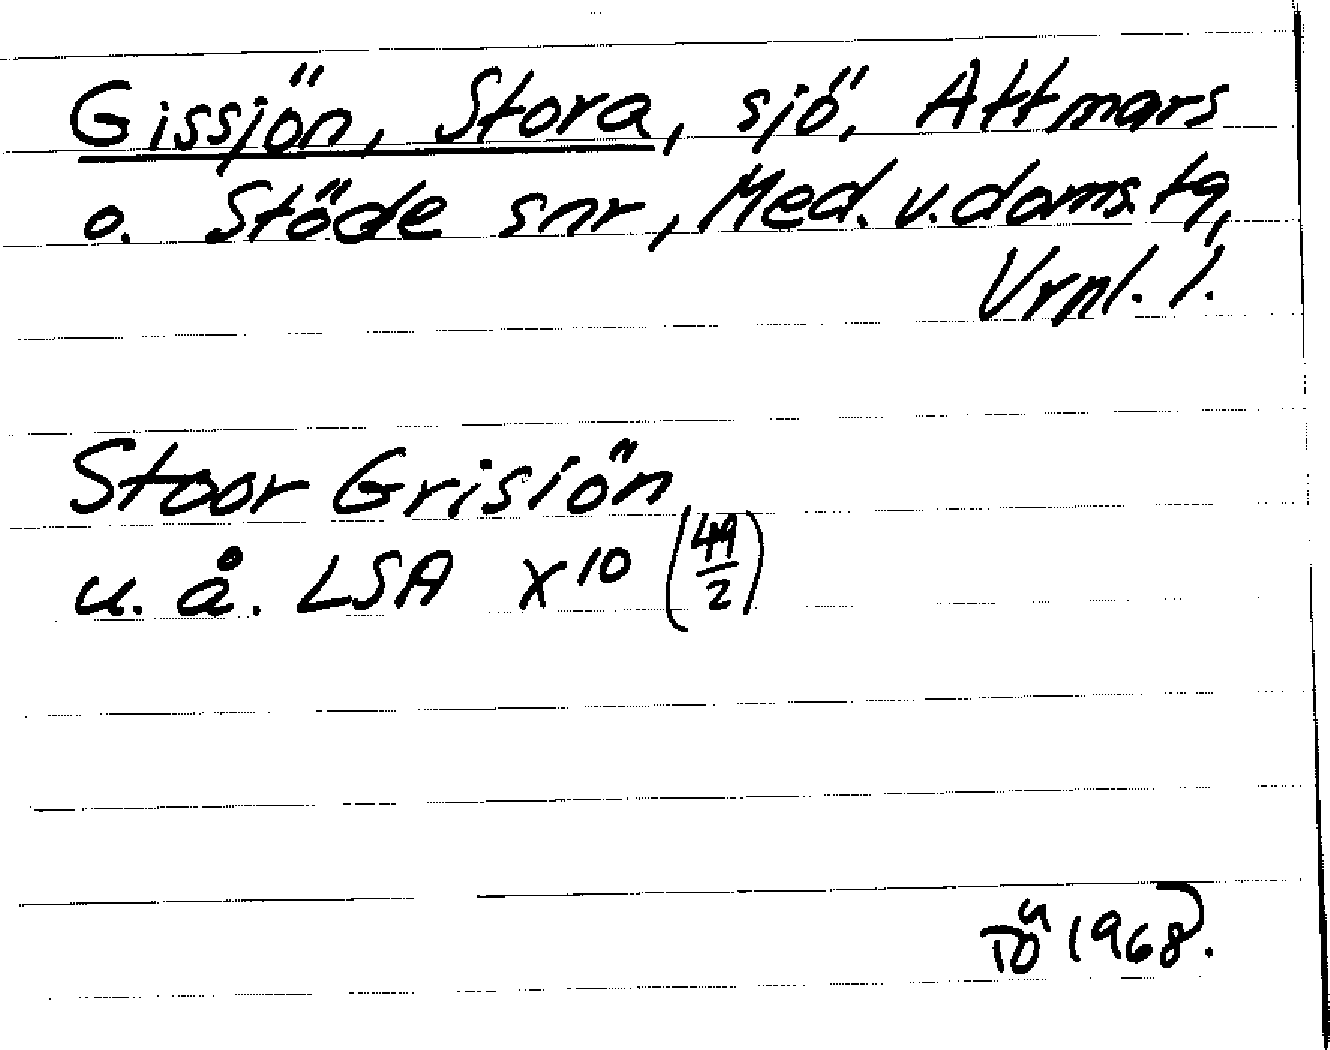 Gissjön, Stora, sjö, Attmars
o. Stöde snr, Med. v. doms. tg,
Vrnl. l.
Stoor Grisiön
u. å. LSA X 10 (49/2)
TÖ 1968.